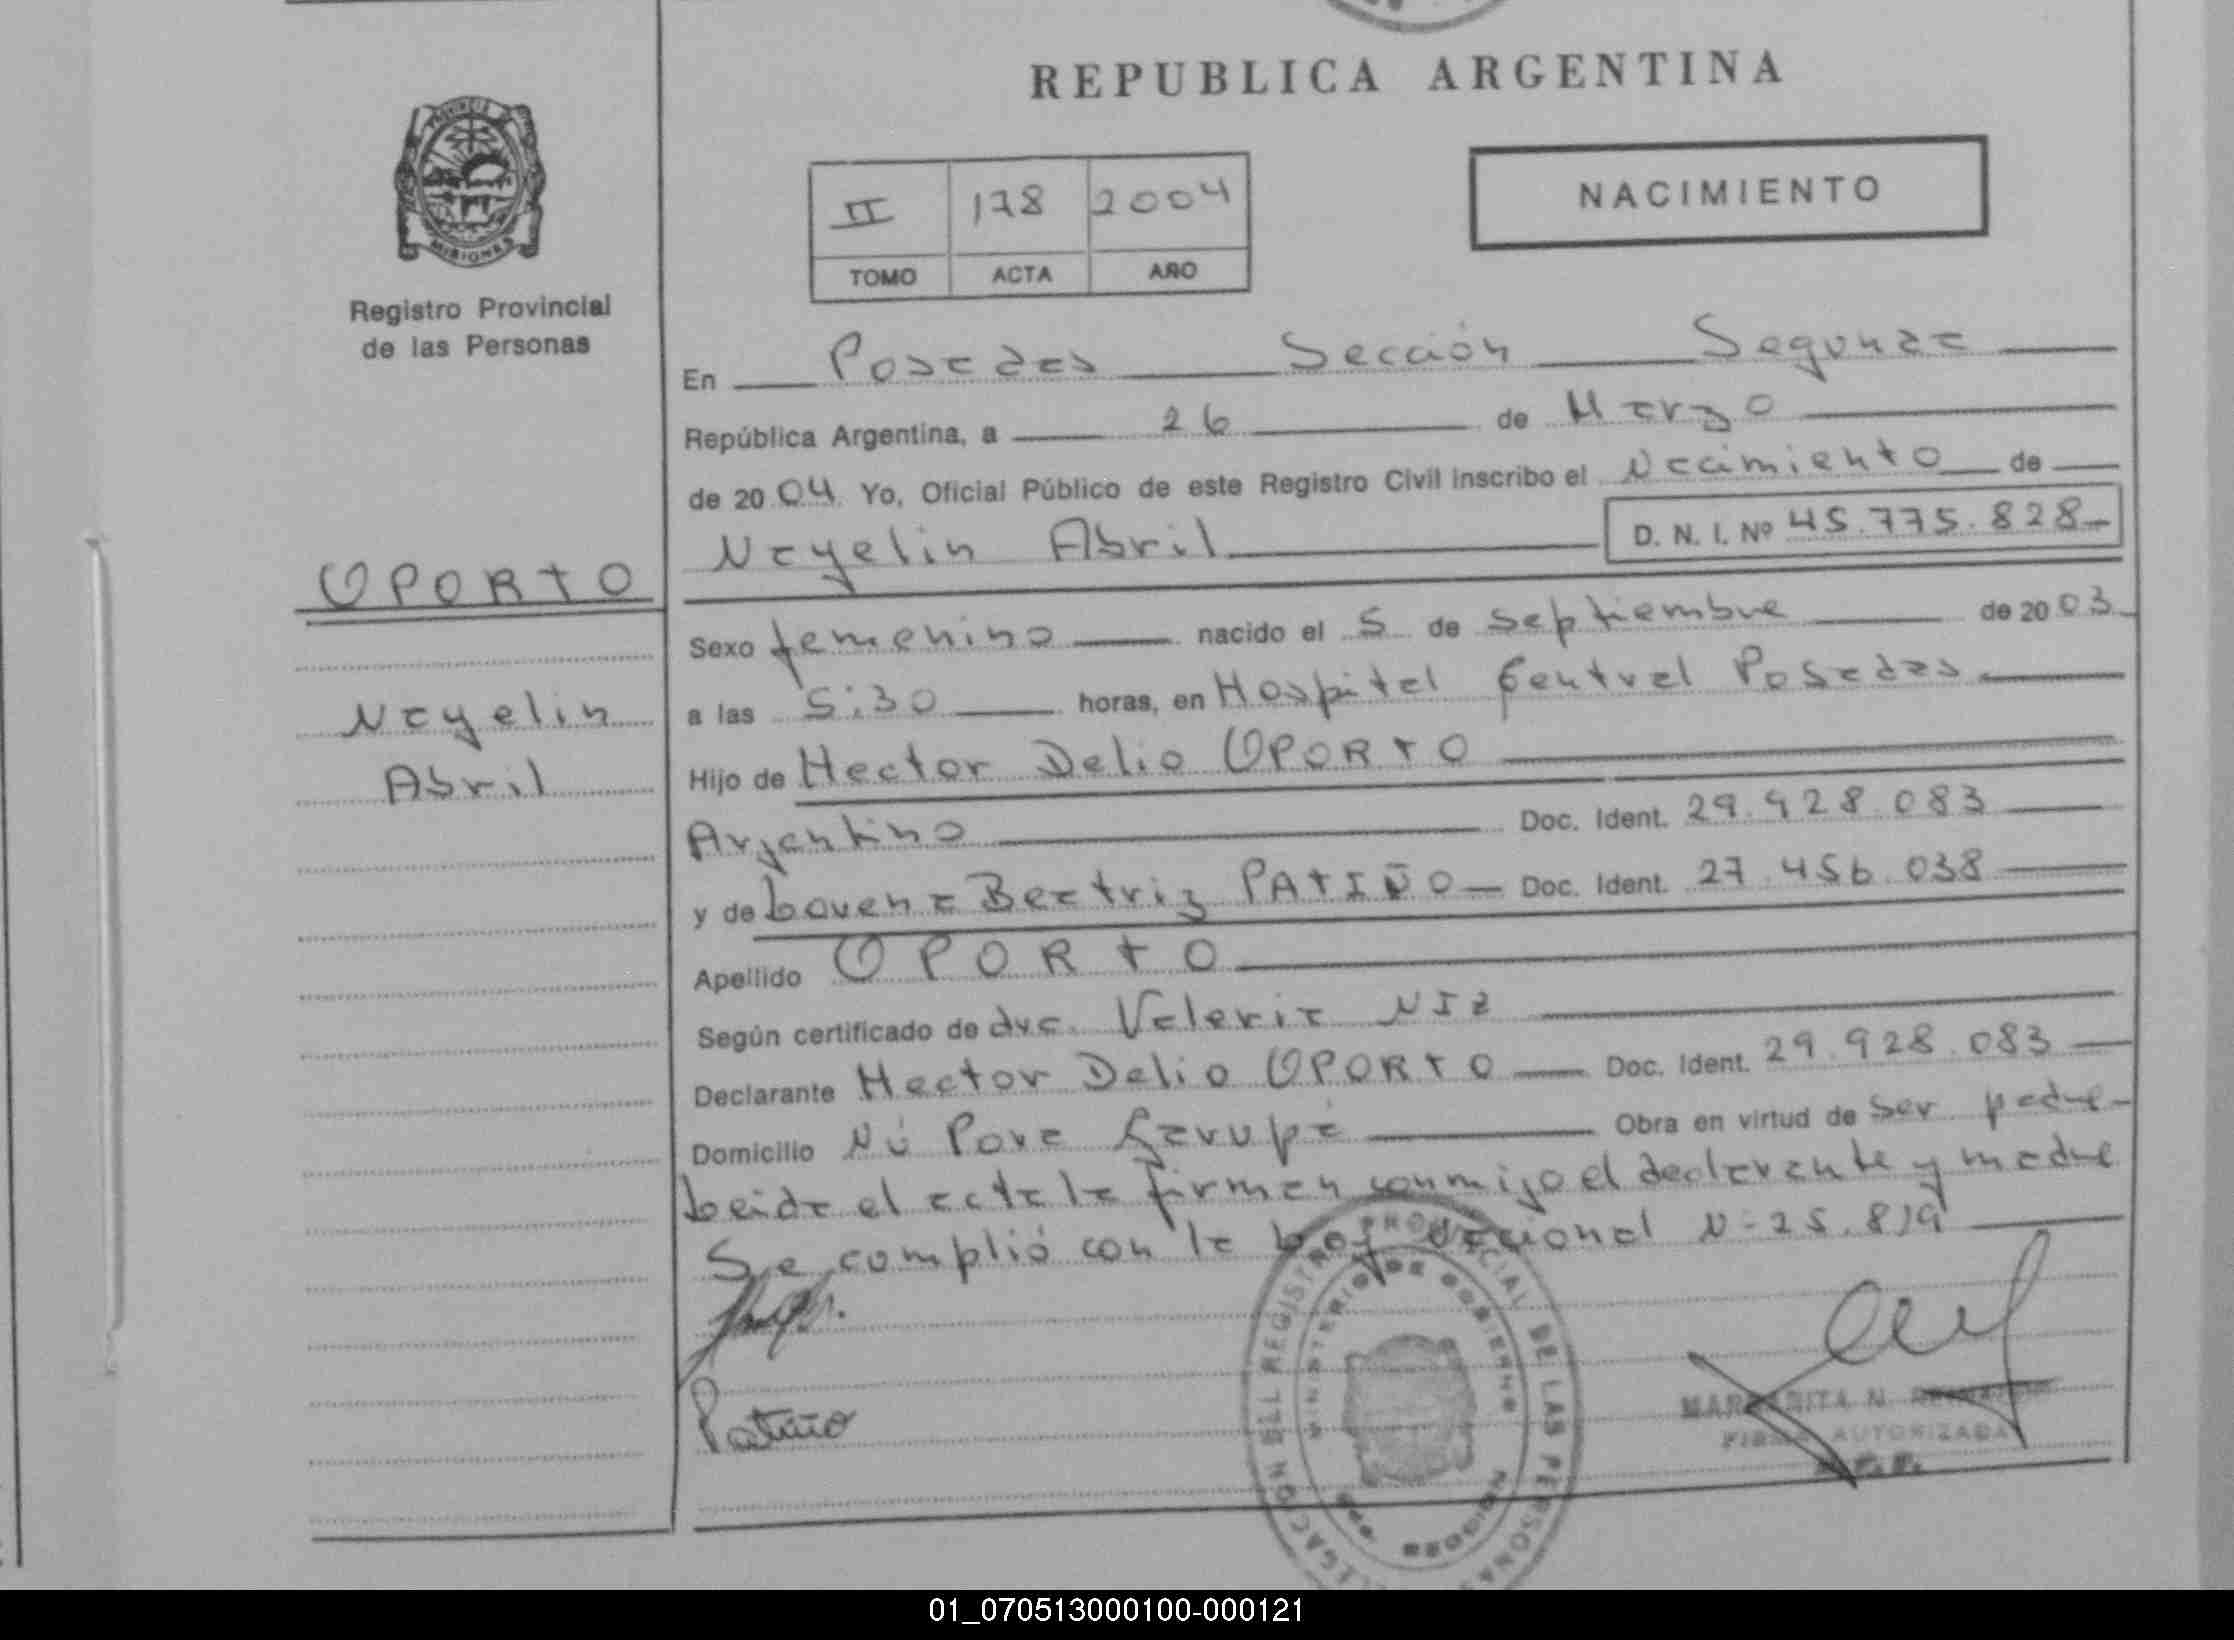 REPUBLICA ARGENTINA
PROVINCIA DE
MISIONES
Registro Provincial
de las Personas
II 178 2004
TOMO ACTA AÑO
NACIMIENTO
En Posadas Sección Segunda
República Argentina, a 26 de Marzo
de 2004 Yo, Oficial Público de este Registro Civil inscribo el Nacimiento de
Nayelin Abril D. N. I. Nº 45.775.828
OPORTO
Nayelin
Abril
Sexo femenino nacido el 5 de Septiembre de 2003
a las 5:30 horas, en Hospital Central Posadas
Hijo de Hector Delio OPORTO
Argentino Doc. Ident. 29.928.083
y de Lorena Beatriz PATIÑO Doc. Ident. 27.456.038
Apellido OPORTO
Según certificado de dra. Valeria NIZ
Declarante Hector Delio OPORTO Doc. Ident. 29.928.083
Domicilio Ñú Porá Garupá Obra en virtud de ser padre
Leida el acta la firman conmigo el declarante y madre
Se complió con la Ley Nacional N- 25.819
Patiño
DELEGACION DEL REGISTRO PROVINCIAL DE LAS PERSONAS
MINISTERIO DE GOBIERNO
MISIONES
MARGARITA N.
FIRMA AUTORIZADA
01_070513000100-000121